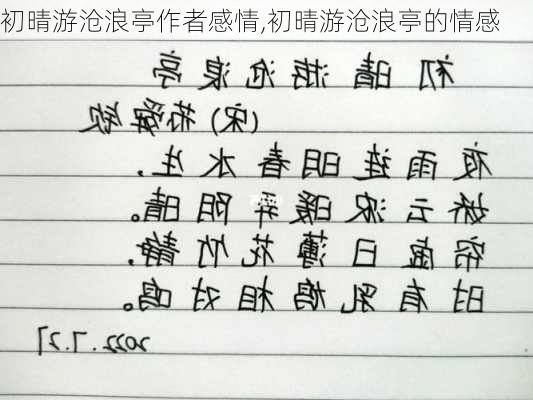 初晴游沧浪亭作者感情,初晴游沧浪亭的情感
初晴游沧浪亭
(宋)苏舜钦
夜雨连明春水生.
娇云浓暖弄阴晴。
帘虚日薄花竹静.
时有乳鸠相对鸣。
2022.7.27